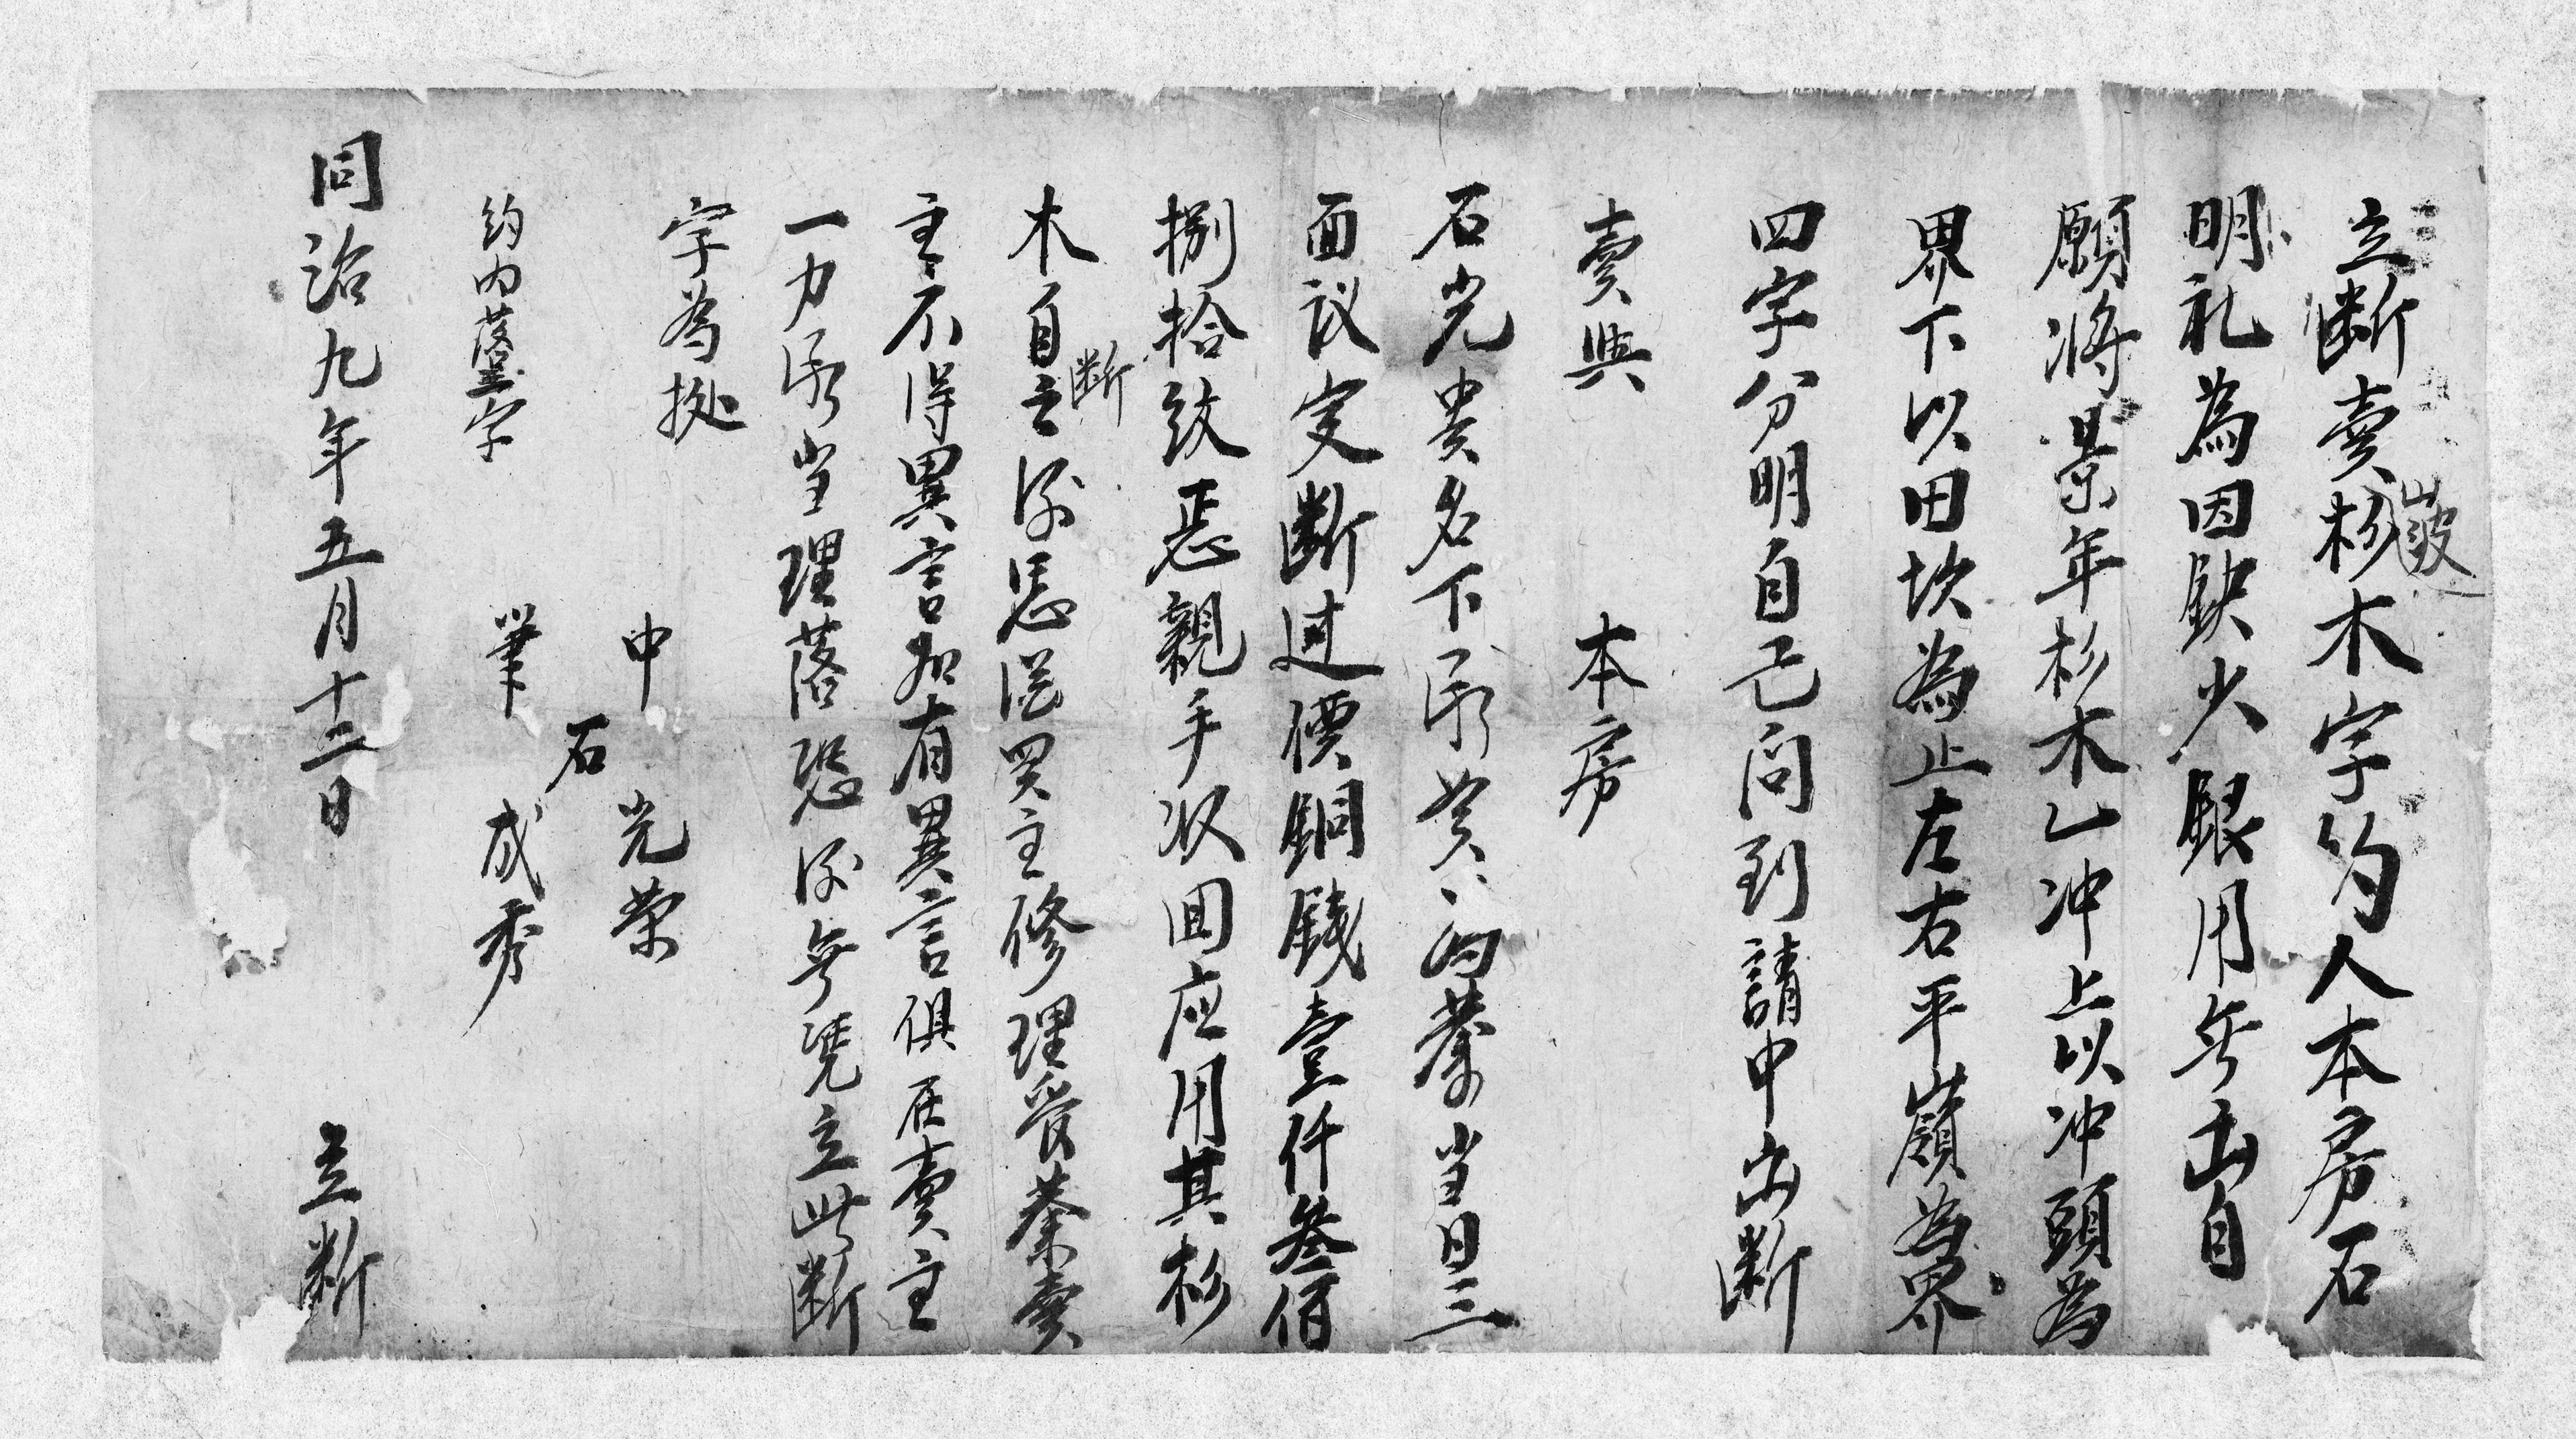 立断賣杉木字約人本房石
嶺
明礼為因缺少銀用無出自
願將景年杉木乙冲上以冲頭為
界下以田坎為止左右平嶺為界
四字分明自己问到請中出断
賣與　本房
石光贵名下承買為業当日三
面议定断过價銅錢壹仟叁佰
捌拾纹恶親手収囬应用其杉
木自立后凭從買主修理管業賣
断
主不得異言如有異言俱在賣主
一力承当理落恐后無凭立此断
字為挋
中　光荣
石
筆　成秀
约内落字
同治九年五月十二日　立断